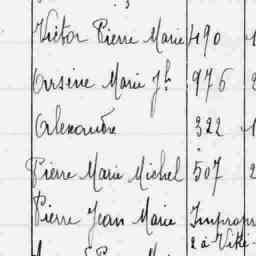 Victor Pierre Marie 490
Arsène Marie Jh 976
Alexandre 322
Pierre Marie Michel 507
Pierre Jean Marie Impropr
2 à Vitré